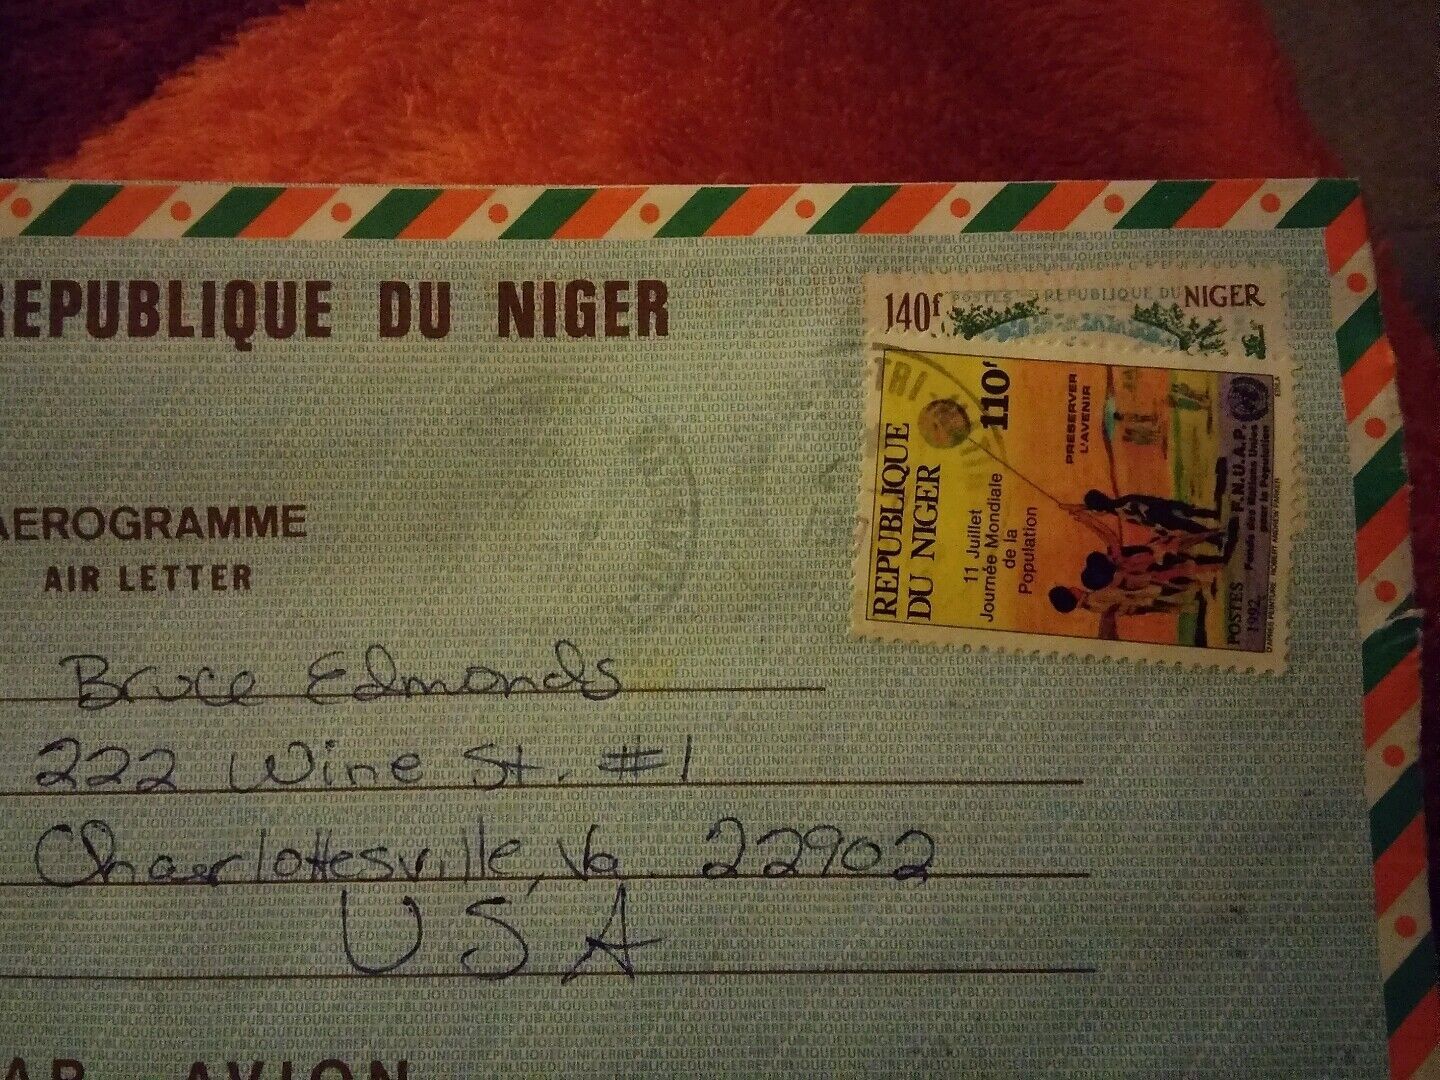 REPUBLIQUE DU NIGER
140f POSTES REPUBLIQUE DU NIGER
TRI
110f
REPUBLIQUE
DU NIGER
11 Juillet
Journée Mondiale
de la
Population
PRESERVER
L'AVENIR
F.N.U.A.P.
Fonds des Nations Unies
pour la Population
POSTES
1992
AEROGRAMME
AIR LETTER
Bruce Edmonds
222 Wine St. #1
Charlottesville, Va. 22902
USA
PAR AVION